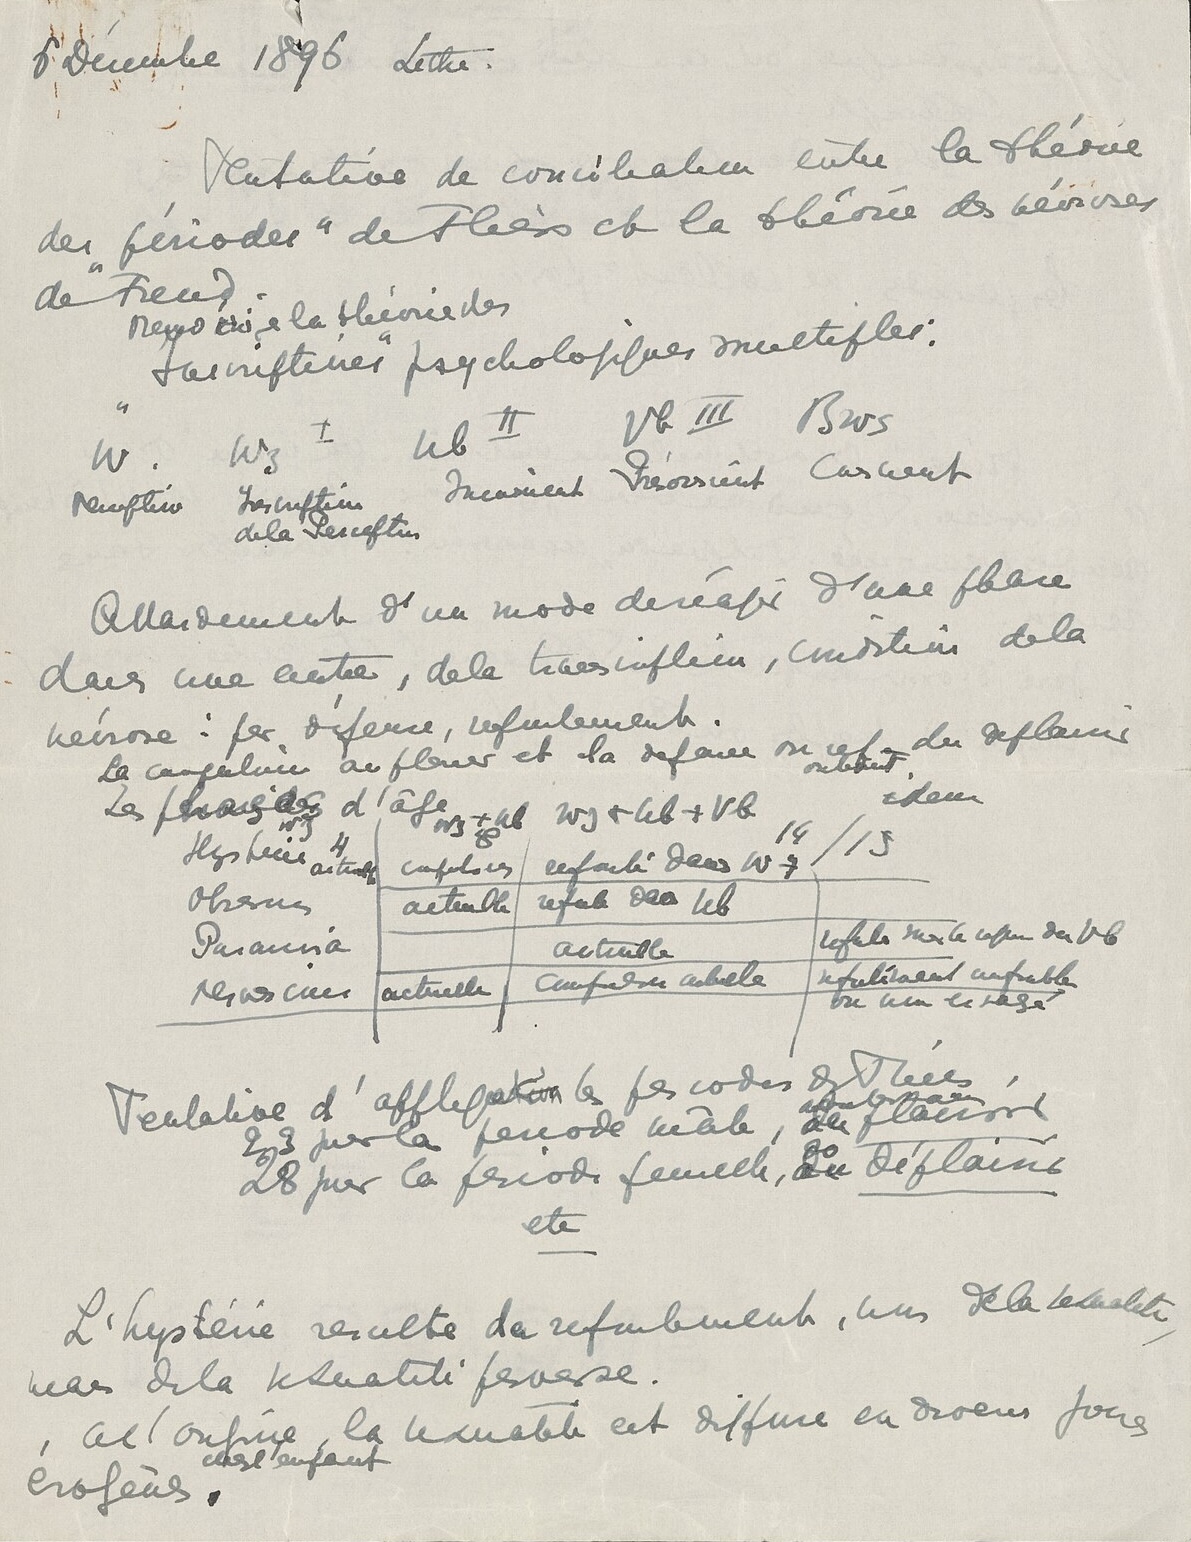 6 Décembre 1896 Lettre.
Tentative de conciliation entre la théorie
des "périodes" de Fliess et la théorie des névroses
de Freud.
à la théorie des
"Inscriptions" psychologiques multiples.
W. Wz I Ub II Vb III Bws
Perception Inscription Inconscient Préconscient Conscient
de la Perception
Attardement d'un mode de réagir d'une phase
dans une autre, de la transcription, condition de la
névrose : par défense, refoulement.
La compulsion au plaisir et la défense ou ref. du déplaisir
Les d'âge Wz + Ub Wz + Ub + Vb idem
Wz 8 14 / 15
Hystérie 4 actuelle compulsion refoulé dans Wz
Obsession actuelle refoulé dans Ub
Paranoia actuelle
Perversion actuelle compulsion actuelle refoulement impossible
ou non essayé
Tentative d'application les périodes de Fliess,
23 pour la période mâle, au plaisir
28 pour la période femelle, au déplaisir
etc
L'hystérie résulte du refoulement, non de la sexualité,
mais de la sexualité perverse.
, à l'origine, la sexualité est diffuse en diverses zones
chez l'enfant
érogènes.